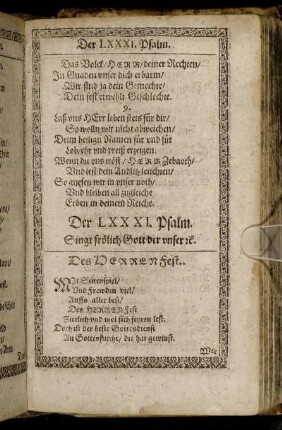 Der LXXXI. Psalm.
Das Volck/ HERR/ deiner Rechten/
In Gnaden vnser dich erbarm/
Wir sind ja dein
Dein fest erwehlt Geschlechte.
9.
Laß vns HErr leben stets für dir/
So wolln wir nicht abweichen/
Deim heilign Namen für vnd für
Lob ehr vnd preiß erzeigen.
Wenn du vns HERR Zebaoth/
Vnd lest dein Andlitz leuchten/
So wir in vnser noth/
Vnd bleiben all zugleiche
Erben in deinem Reiche.
Der LXXXI. Psalm.
Singt frölich Gott der vnser ꝛc.
Des HERREN Fest.
Mit Seitenspiel/
Vnd Frewden viel/
Auffs aller best/
Des HERREN Fest
Zierlich vnd wol sich feyren lest.
Doch ist der beste Gottesdienst
An Gottesfurcht/ die hat gewinst.
Wer